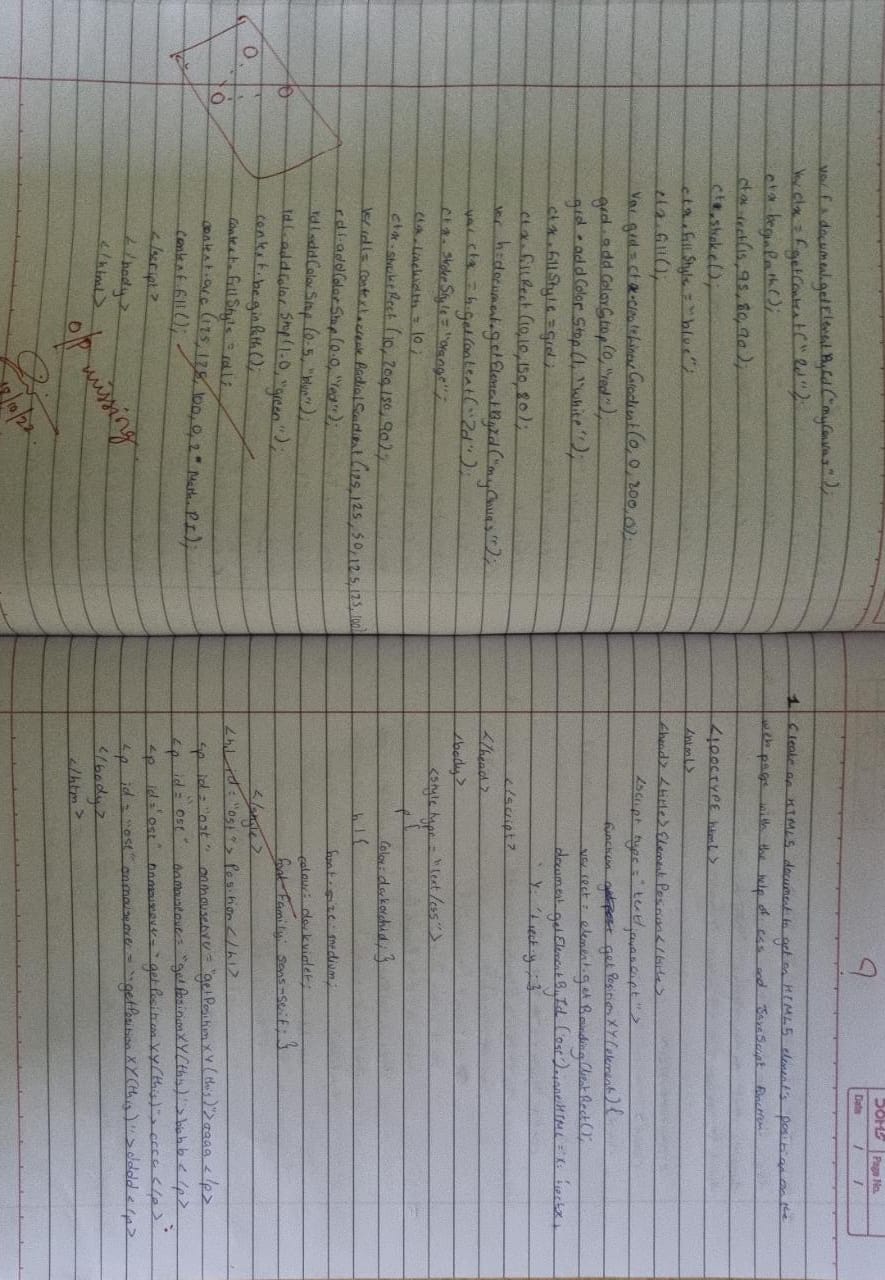 var f = document.getElementById("myCanvas");
var ctx = f.getContext("2d");
ctx.beginPath();
ctx.rect(15, 95, 80, 90);
ctx.stroke();
ctx.fillStyle = "blue";
ctx.fill();
var grd = ctx.createLinearGradient(0, 0, 200, 0);
grd.addColorStop(0, "red");
grd.addColorStop(1, "white");
ctx.fillStyle = grd;
ctx.fillRect(10, 10, 150, 80);
var h = document.getElementById("myCanvas");
var ctx = h.getContext("2d");
ctx.strokeStyle = "orange";
ctx.lineWidth = 10;
ctx.strokeRect(10, 200, 180, 90);
var rdl = context.createRadialGradient(125, 125, 50, 125, 125, 100)
rdl.addColorStop(0.0, "red");
rdl.addColorStop(0.5, "blue");
rdl.addColorStop(1.0, "green");
context.beginPath();
context.fillStyle = rdl;
context.arc(125, 125, 100, 0, 2 * Math.PI);
context.fill();
</script>
</body>
</html>
o/p missing
SOHES
Page No.
Date / /
9
1 Create an HTML5 document to get an HTML5 element's position on the
web page with the help of css and JavaScript function.
<!DOCTYPE html>
<html>
<head> <title> Element Position </title>
<script type = "text/javascript">
function getPositionXY(element) {
var rect = element.getBoundingClientRect();
document.getElementById('ost').innerHTML = 'X: '+rect.x+
'Y: '+rect.y; }
</script>
</head>
<body>
<style type = "text/css">
p {
color: darkorchid; }
h1 {
font-size: medium;
colour: darkviolet;
font-family: sans-serif; }
</style>
<h1 id = "ost"> Position </h1>
<p id = "ost" onmouseover = "getPositionXY(this)"> aaaa </p>
<p id = "ost" onmouseover = "getPositionXY(this)"> bbbb </p>
<p id = "ost" onmouseover = "getPositionXY(this)"> cccc </p>
<p id = "ost" onmouseover = "getPositionXY(this)"> dddd </p>
</body>
</html>